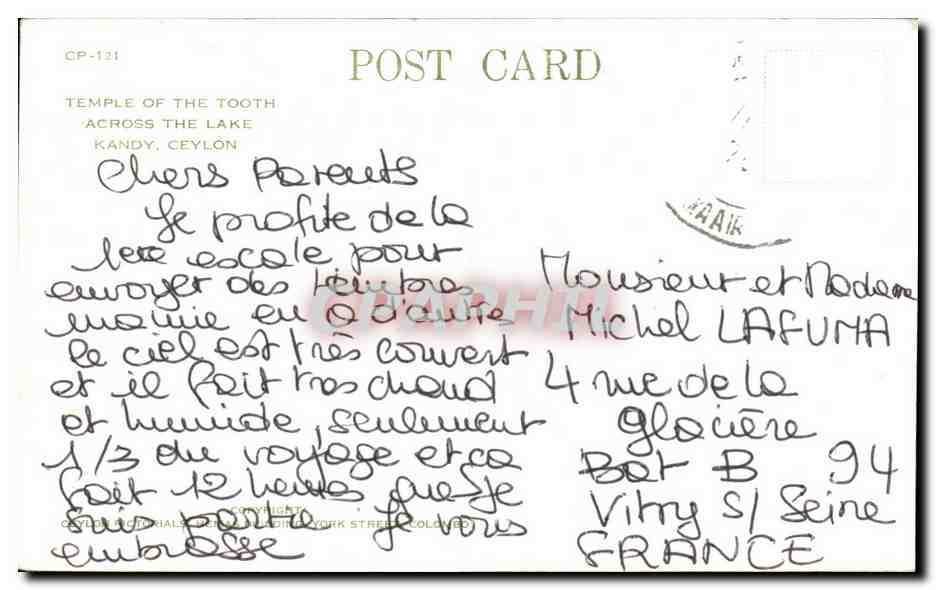 CP-121
POST CARD
TEMPLE OF THE TOOTH
ACROSS THE LAKE
KANDY, CEYLON
Chers Parents
Je profite de la
1ere escale pour
envoyer des timbres
mamie en
le ciel est très couvert
et il fait tres chaud
et humide, seulement
1/3 du voyage et ca
fait 12 heures que je
suis partie Je vous
embrasse
COPYRIGHT
CEYLON PICTORIALS, HEMAS BUILDING, YORK STREET, COLOMBO
Monsieur et Madame
Michel LAFUMA
4 rue de la
glacière
Bat B 94
Vitry S/ Seine
FRANCE
CPAPHIL